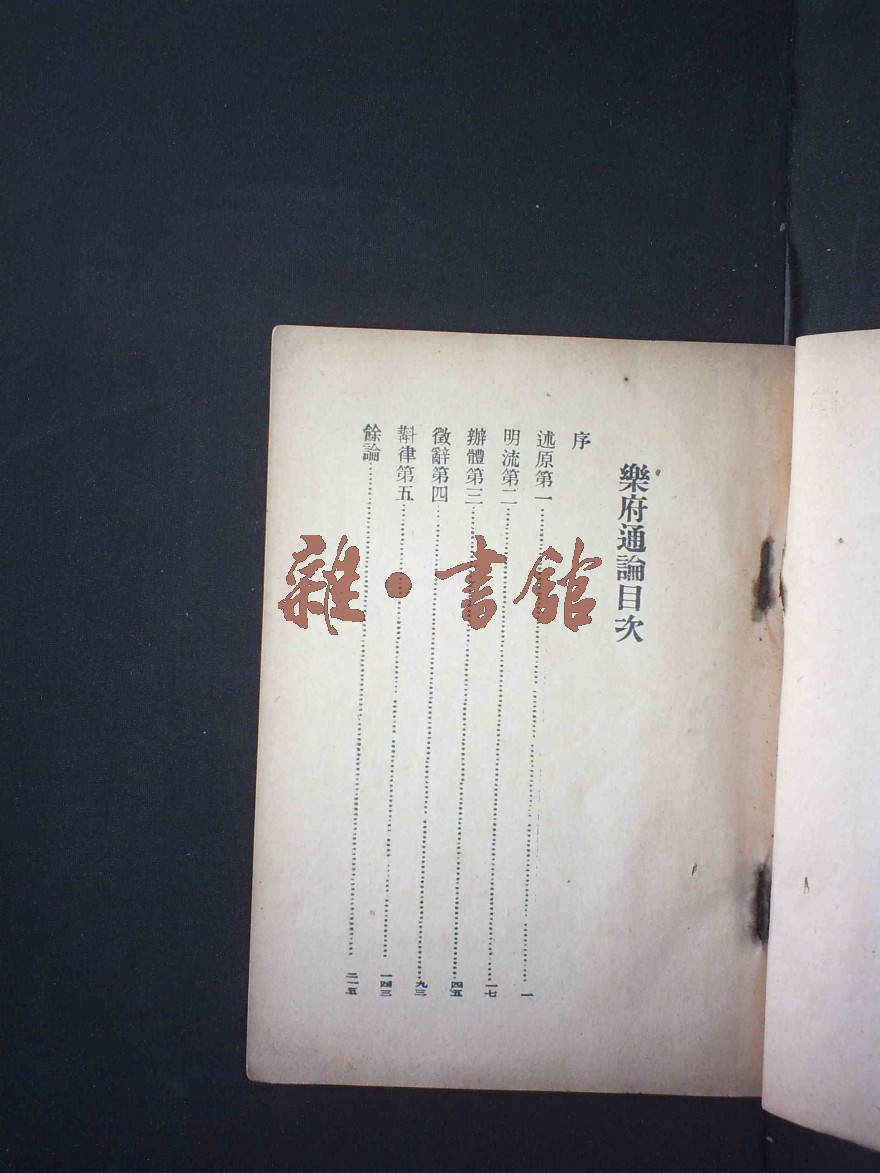 樂府通論目次
序
述原第一……一
明流第二……一七
辦體第三……四五
徵辭第四……九三
斠律第五……一四三
餘論……二一五
雜・書館